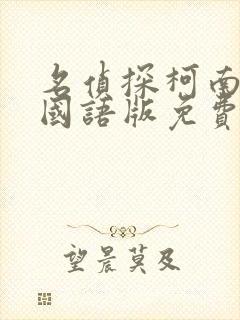 名偵探柯南
國語版免費
望晨莫及